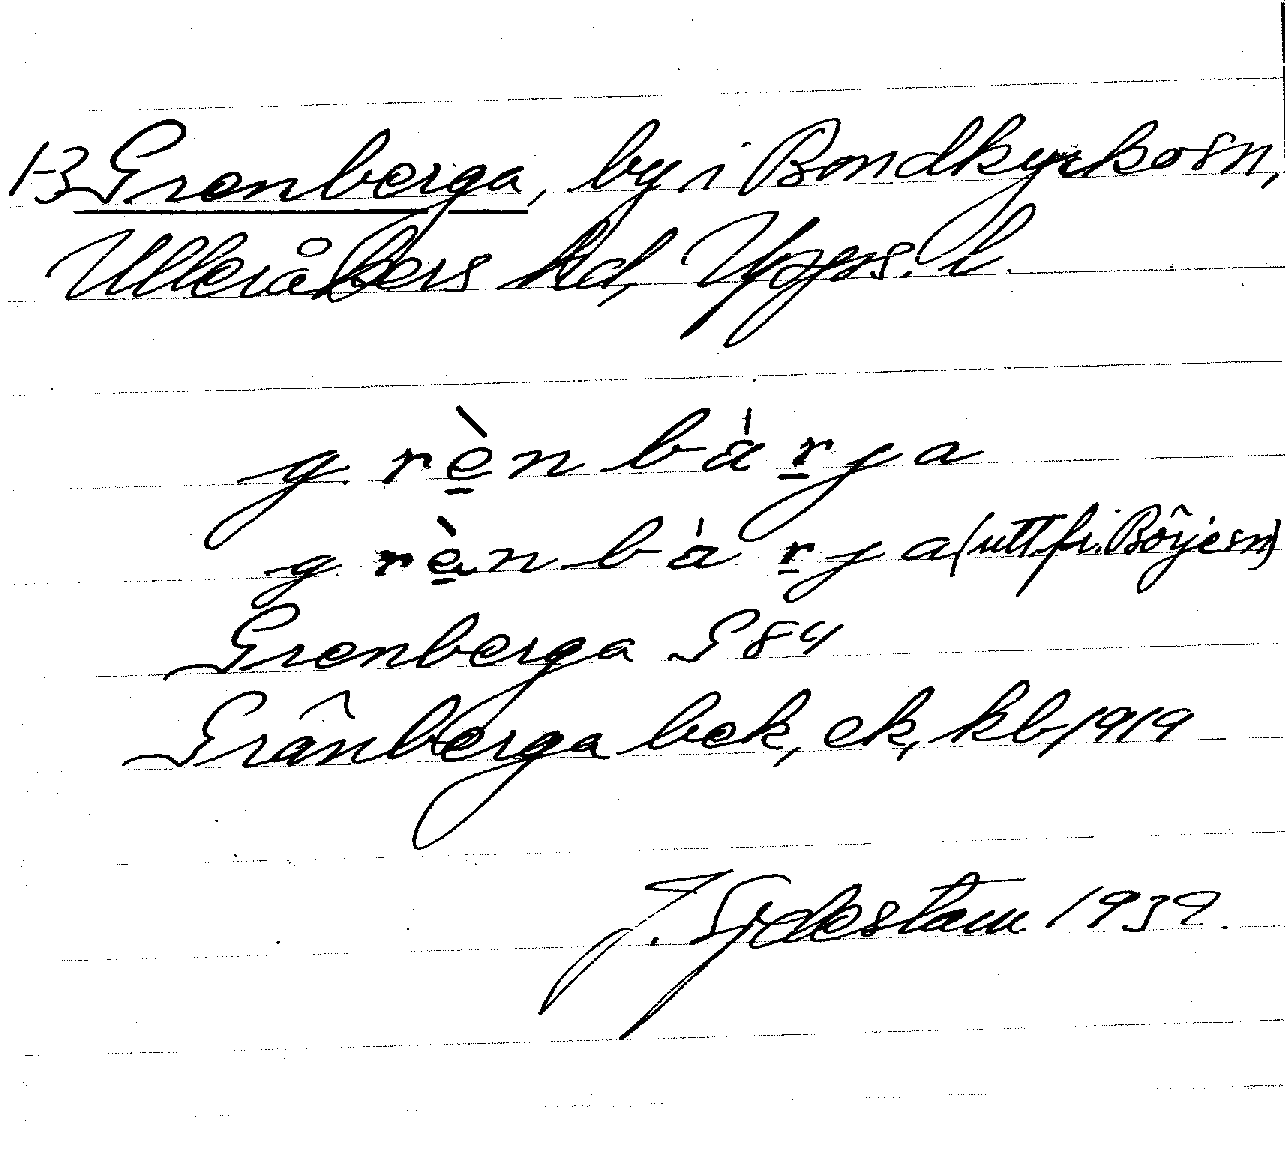 1-3 Grenberga, by i Bondkyrkosn,
Ulleråkers hd, Upps. l.
grè̱nbàṟja
grè̱nbàṟja (utt fr. Börjesn)
Grenberga G84
Gränberga bek, ek, kb 1919
J. Sjdestam 1939.